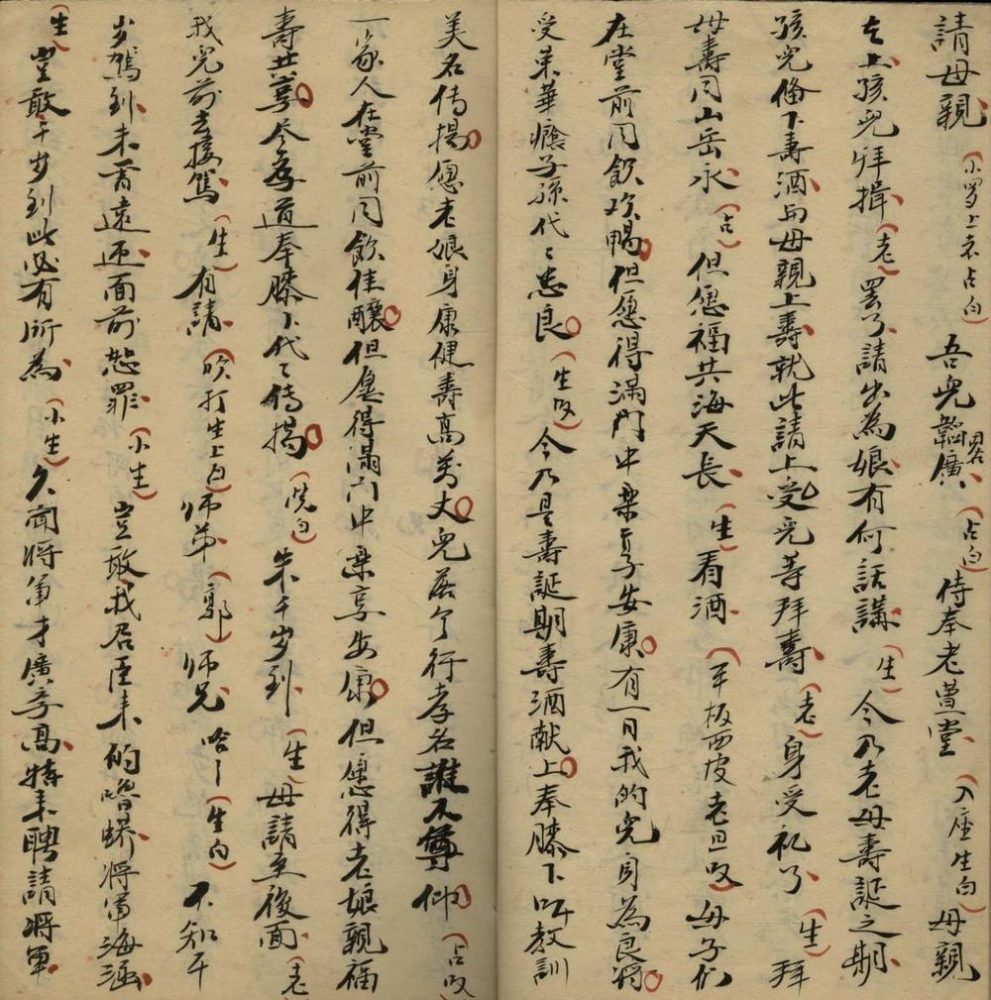 請母親（小罗上衣占白）吾兒韜廣（占白）侍奉老萱堂（入座生白）母親
在上孩兒拜揖（老）罢了請出為娘有何話講（生）今乃老母壽誕之期
孩兒俻下壽酒与母親上壽就此請上受兒等拜壽（老）身受礼了（生）拜
母壽同山岳永（占）但愿福共海天長（生）看酒（平板西皮老旦叹）母子们
在堂前同飲欢暢但愿得滿門中樂享安康有一日我的兒身為良将
受荣華癊子孫代〻忠良（生叹）今乃是壽誕期壽酒献上奉膝下听教訓
美名传揚愿老娘身康健壽高万丈兒行孝名誰不尊仰（占叹）
一家人在堂前同飲佳釀但愿得滿门中樂享安康但愿得老娘親福
壽无尽孝道奉膝下代〻传揚（洗白）朱千岁到（生）母請至後面（老）
我兒前去接駕（生）有請（吹打生上白）师弟（郭）师兄哈〻（生白）不知千
岁駕到未曾遠迎面前恕罪（小生）豈敢我君臣来的嚕囌将軍海涵
（生）豈敢千岁到此必有所為（小生）久闻将軍才廣李高特来聘請将軍